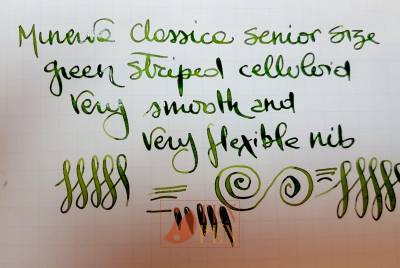 Minerva Classica senior size
green striped celluloid
very smooth and
very flexible nib